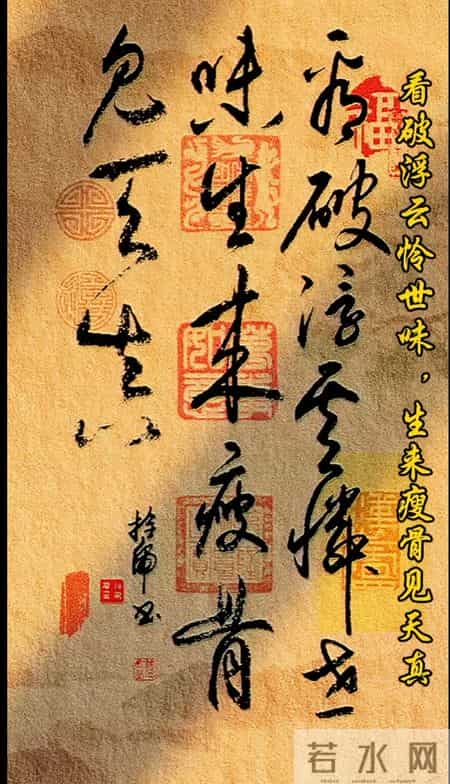 看破浮云怜世味，生来瘦骨见天真
看破浮云憐世
味生来瘦骨
见天真
福
若水网